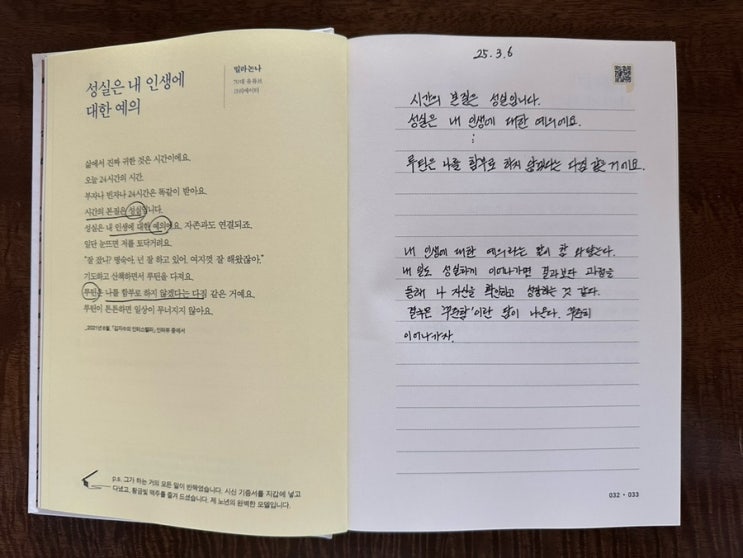 성실은 내 인생에
대한 예의
밀라논나
70대 유튜브
크리에이터
삶에서 진짜 귀한 것은 시간이에요.
오늘 24시간의 시간.
부자나 빈자나 24시간은 똑같이 받아요.
시간의 본질은 성실입니다.
성실은 내 인생에 대한 예의예요. 자존과도 연결되죠.
일단 눈뜨면 저를 토닥거려요.
“잘 잤니? 명숙아, 넌 잘 하고 있어. 여지껏 잘 해왔잖아.”
기도하고 산책하면서 루틴을 다져요.
루틴은 나를 함부로 하지 않겠다는 다짐 같은 거예요.
루틴이 튼튼하면 일상이 무너지지 않아요.
_2021년 8월 「김지수의 인터스텔라」 인터뷰 중에서
p.s. 그가 하는 거의 모든 일이 반짝였습니다. 시신 기증서를 지갑에 넣고
다녔고, 황금빛 맥주를 즐겨 드셨습니다. 제 노년의 완벽한 모델입니다.
25. 3. 6
시간의 본질은 성실입니다.
성실은 내 인생에 대한 예의에요.
⋮
루틴은 나를 함부로 하지 않겠다는 다짐 같은 거에요.
내 인생에 대한 예의라는 말이 참 와닿는다.
내 일도 성실하게 이어나가면 결과보다 과정을
통해 나 자신을 확인하고 성장하는 것 같다.
결국은 '꾸준함'이란 답이 나온다. 꾸준히
이어나가자.
032 • 033